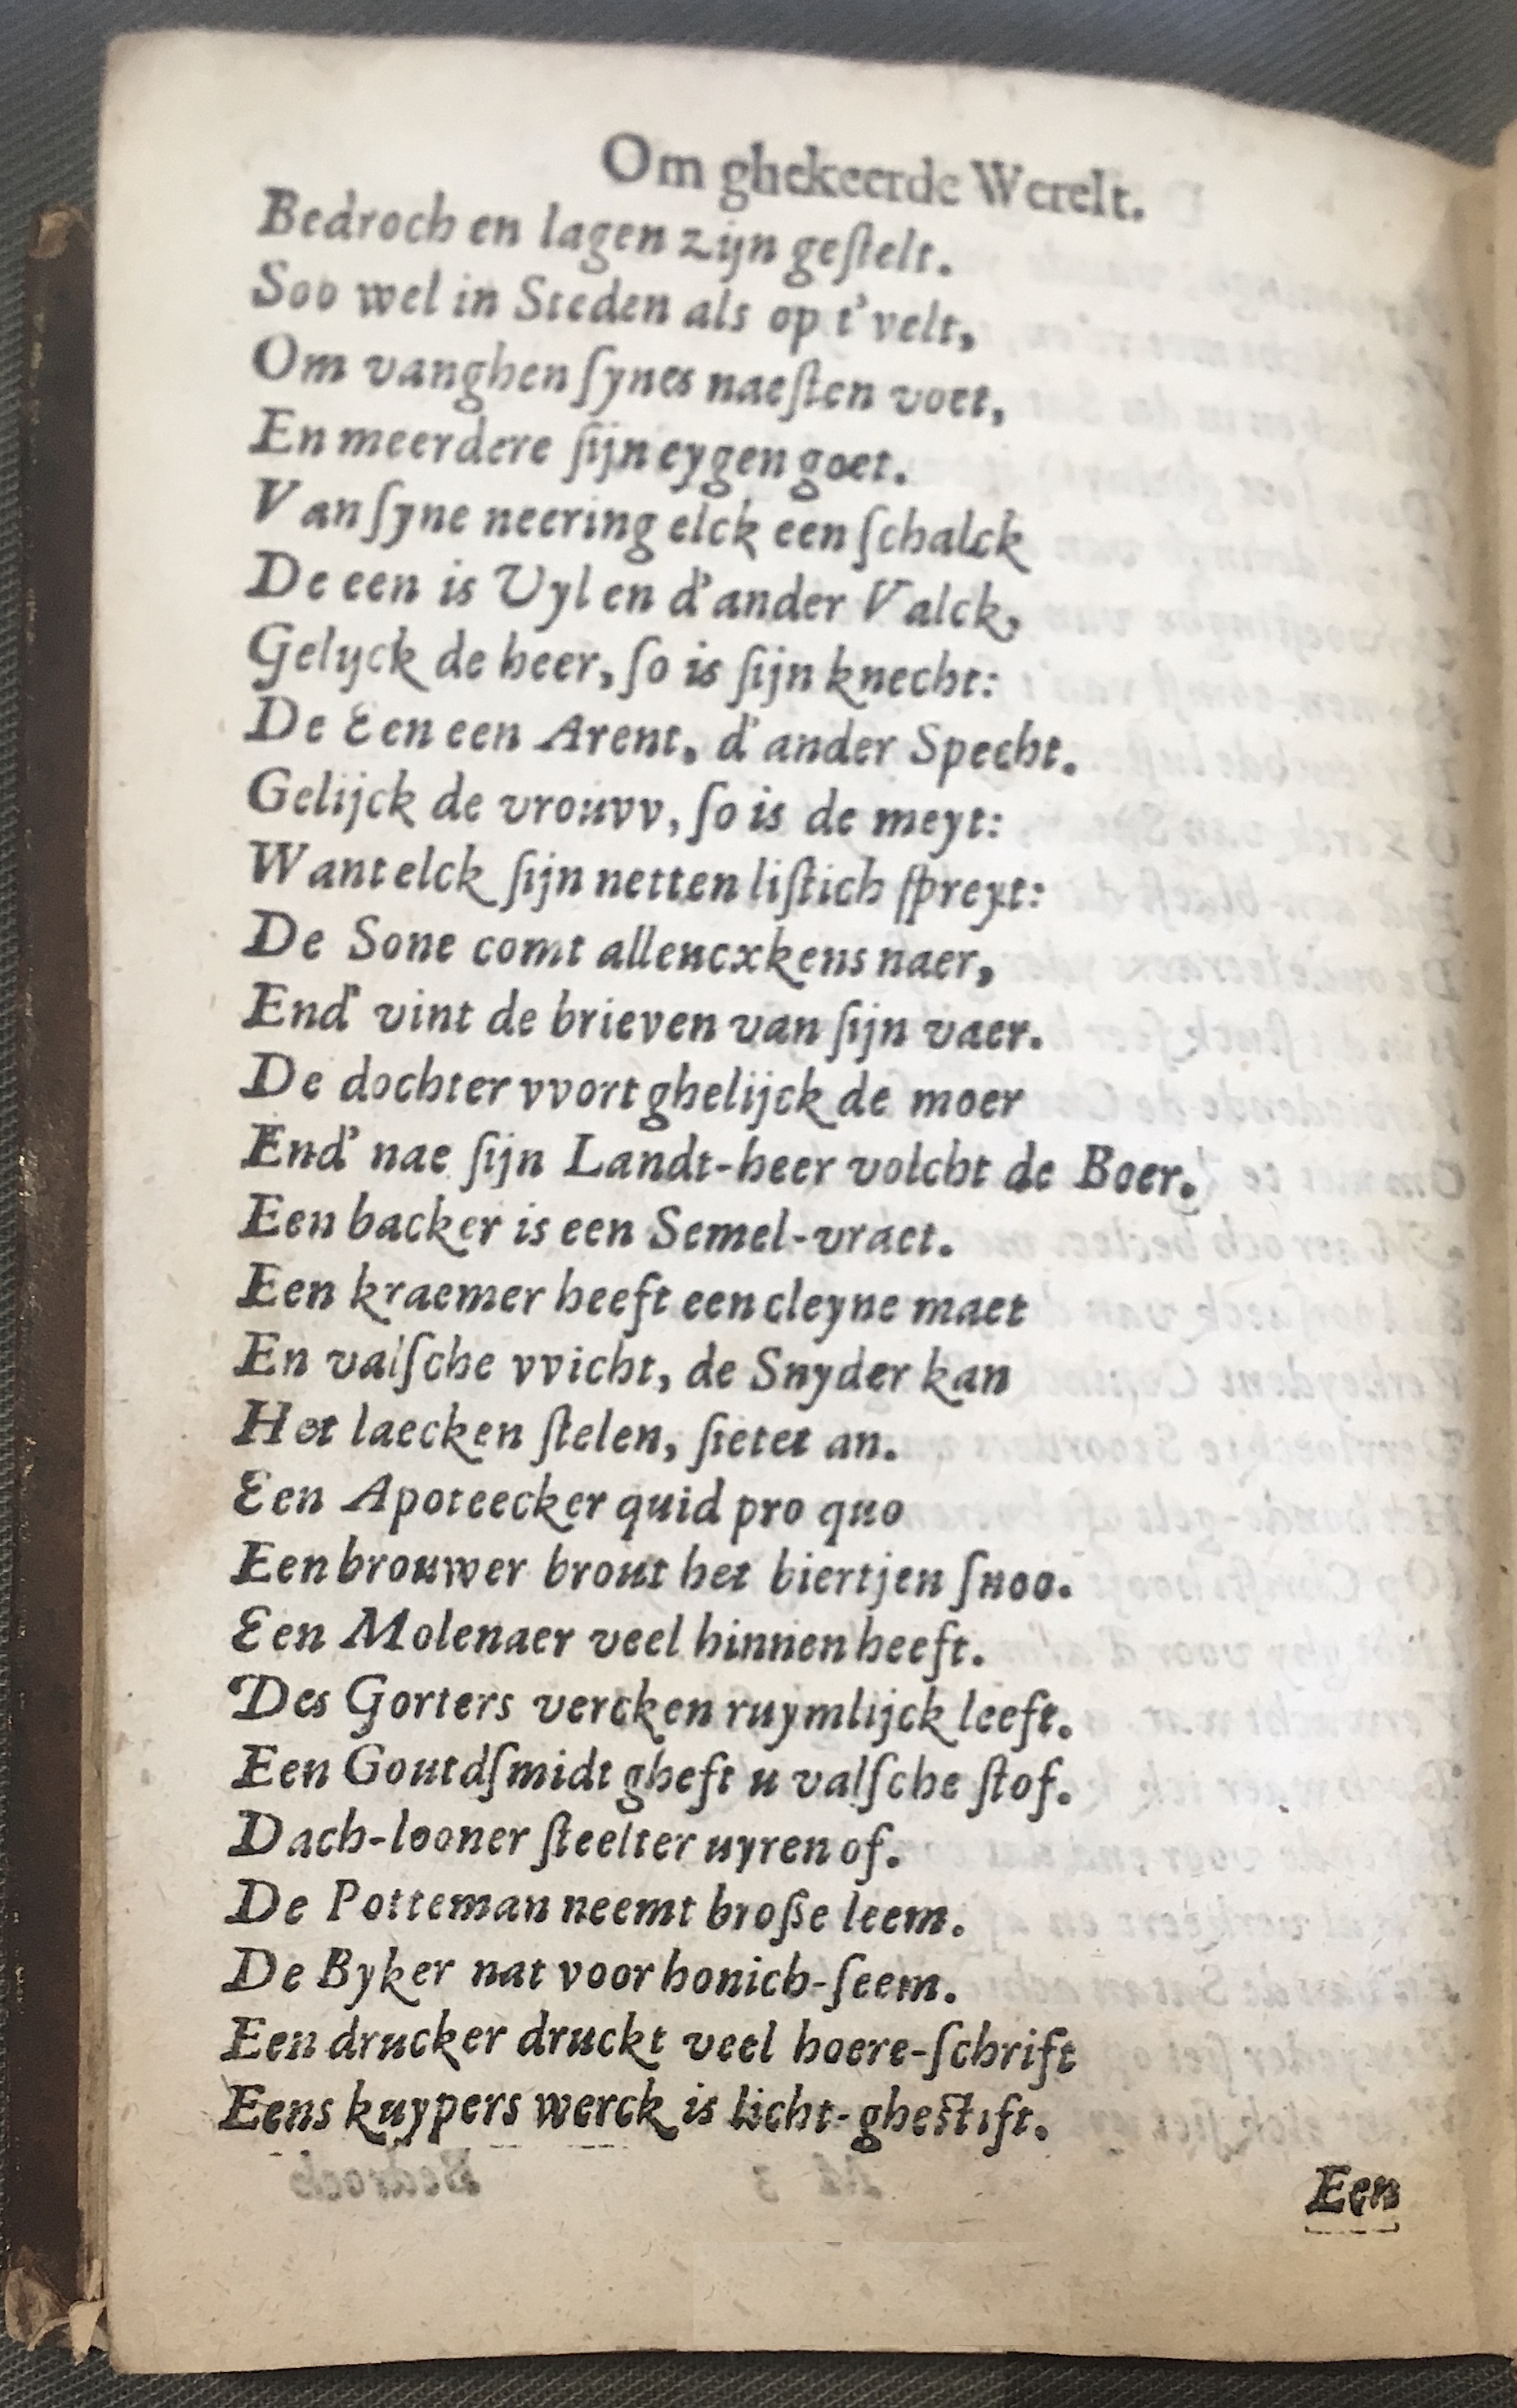 Om ghekeerde Werelt.
Bedroch en lagen zijn geſtelt.
Soo wel in Steden als op t'velt,
Om vanghen ſynes naeſten voet,
En meerdere ſijn eygen goet.
Van ſyne neering elck een ſchalck
De een is Uyl en d'ander Valck,
Gelyck de heer, ſo is ſijn knecht:
De Een een Arent, d'ander Specht.
Gelijck de vrouvv, ſo is de meyt:
Want elck ſijn netten liſtich ſpreyt:
De Sone comt allencxkens naer,
End' vint de brieven van ſijn vaer.
De dochter vvort ghelijck de moer
End' nae ſijn Landt-heer volcht de Boer.
Een backer is een Semel-vraet.
Een kraemer heeft een cleyne maet
En valſche vvicht, de Snyder kan
Het laecken ſtelen, ſietet an.
Een Apoteecker quid pro quo
Een brouwer brout het biertjen ſnoo.
Een Molenaer veel hinnen heeft.
Des Gorters vercken ruymlijck leeft.
Een Goutdſmidt gheft u valſche ſtof.
Dach-looner ſteelter uyren of.
De Potteman neemt broſse leem.
De Byker nat voor honich-ſeem.
Een drucker druckt veel hoere-ſchrift
Eens kuypers werck is licht-gheſtift.
Een